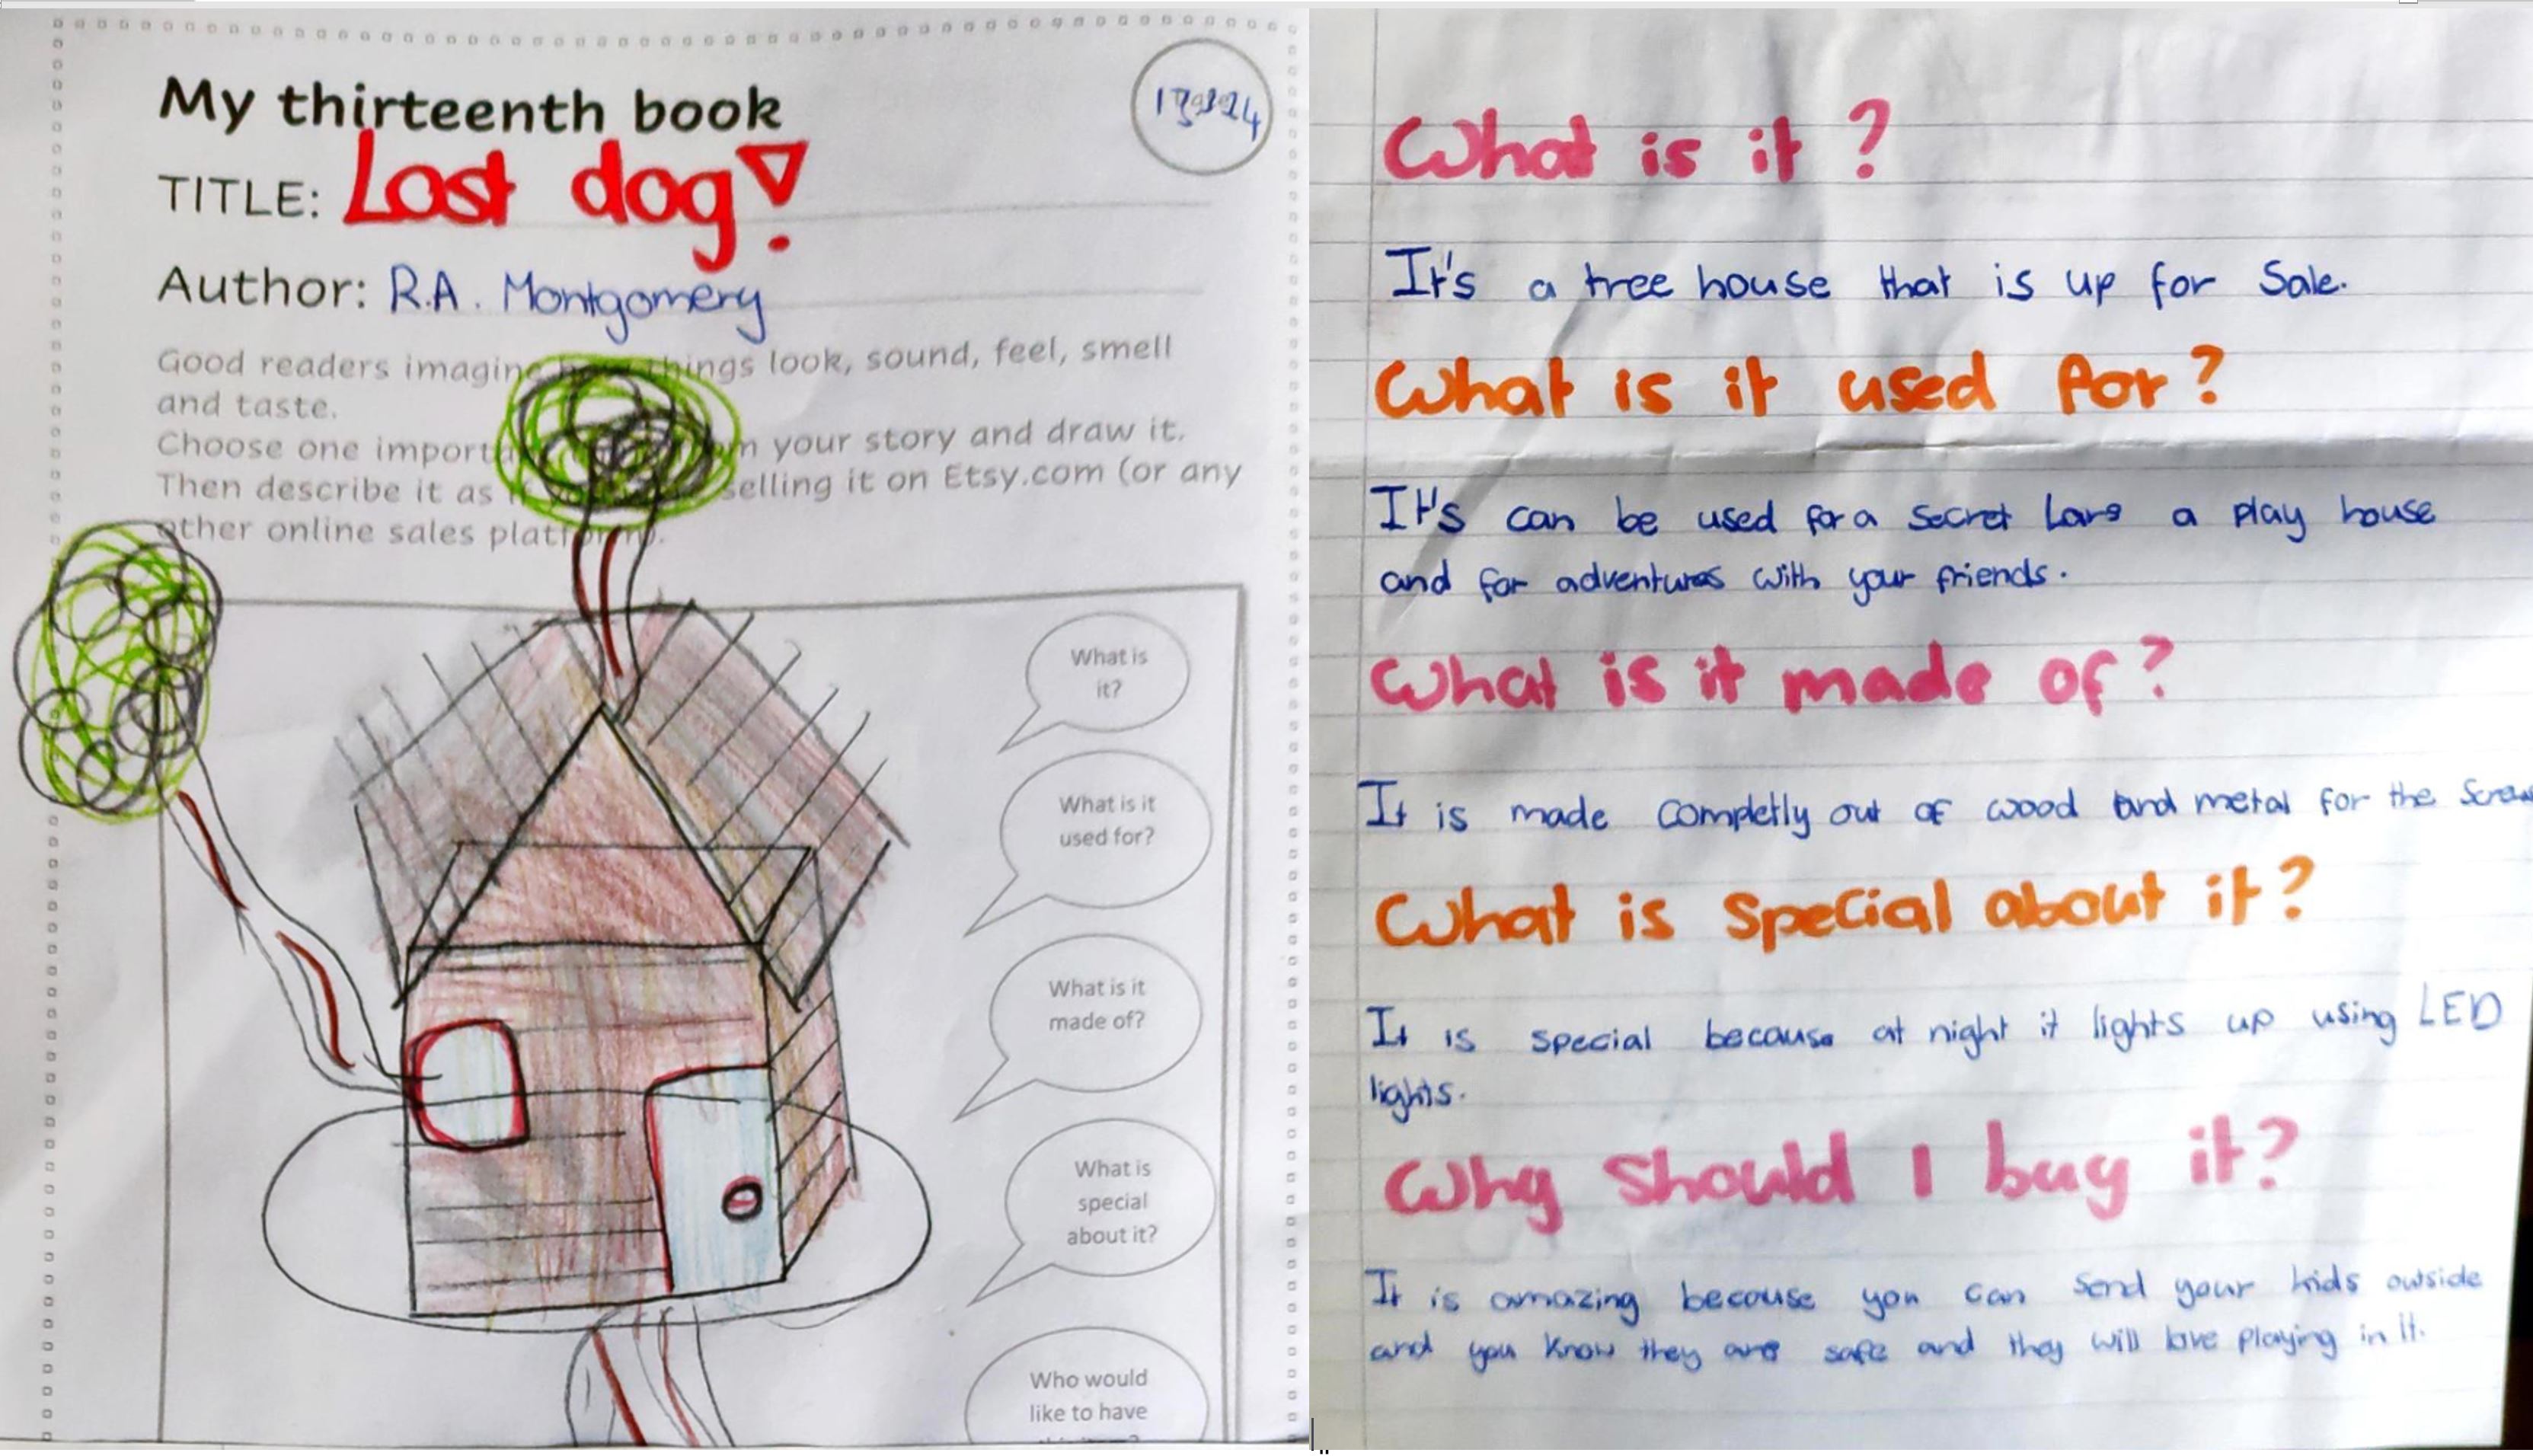 My thirteenth book
TITLE: Lost dog!
Author: R.A. Montgomery
Good readers imagine things look, sound, feel, smell
and taste.
Choose one your story and draw it.
Then describe it as selling it on Etsy.com (or any
other online sales platform).
What is
it?
What is it
used for?
What is it
made of?
What is
special
about it?
Who would
like to have
What is it?
It's a tree house that is up for Sale.
What is it used for?
It's can be used for a secret a play house
and for adventures with your friends.
What is it made of?
It is made completly out of wood and metal for the
What is special about it?
It is special because at night it lights up using LED
lights.
Why should I buy it?
It is amazing because you can send your kids outside
and you know they are safe and they will love playing in it.